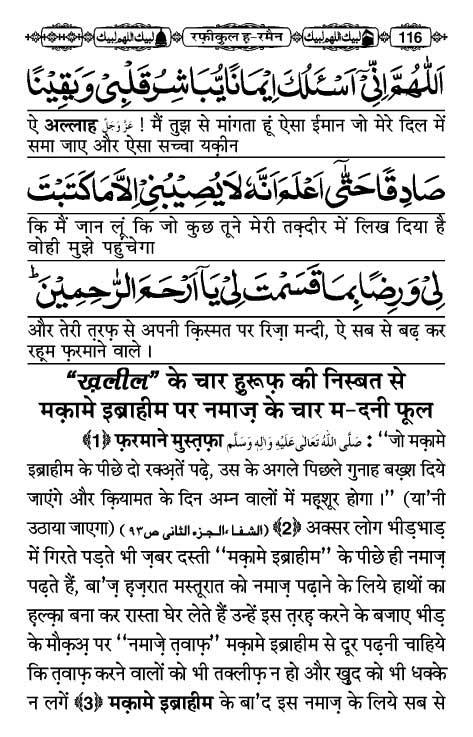 لبيك اللهم لبيك رफ़ीकुल ह-रमैन لبيك اللهم لبيك 116
اَللّٰهُمَّ اِنِّیْۤ اَسْئَلُكَ اِیْمَانًا یُّبَاشِرُ قَلْبِیْ وَیَقِیْنًا
ऐ अल्लाह عَزَّوَجَلَّ ! मैं तुझ से मांगता हूं ऐसा ईमान जो मेरे दिल में
समा जाए और ऐसा सच्चा यक़ीन
صَادِقًا حَتّٰىۤ اَعْلَمَ اَنَّهٗ لَا یُصِیْبُنِیْۤ اِلَّا مَا كَتَبْتَ
कि मैं जान लूं कि जो कुछ तूने मेरी तक़्दीर में लिख दिया है
वोही मुझे पहुंचेगा
لِیْ وَرِضًا بِمَا قَسَمْتَ لِیْ یَاۤ اَرْحَمَ الرّٰحِمِیْنَ ؕ
और तेरी त़रफ़ से अपनी क़िस्मत पर रिज़ा मन्दी, ऐ सब से बढ़ कर
रह़्म फ़रमाने वाले ।
“ख़लील” के चार हुरूफ़ की निस्बत से
मक़ामे इब्राहीम पर नमाज़ के चार म-दनी फूल
﴾1﴿ फ़रमाने मुस्त़फ़ा صَلَّى اللهُ تَعَالٰى عَلَيْهِ وَاٰلِهٖ وَسَلَّم : ‘‘जो मक़ामे
इब्राहीम के पीछे दो रक्अ़तें पढ़े, उस के अगले पिछले गुनाह बख़्श दिये
जाएंगे और क़ियामत के दिन अम्न वालों में मह़्शूर होगा ।’’ (या'नी
उठाया जाएगा) (الشفاء الجزء الثانی ص۹۳) ﴾2﴿ अक्सर लोग भीड़भाड़
में गिरते पड़ते भी ज़बर दस्ती ‘‘मक़ामे इब्राहीम’’ के पीछे ही नमाज़
पढ़ते हैं, बा'ज़ ह़ज़रात मस्तूरात को नमाज़ पढ़ाने के लिये हाथों का
ह़ल्क़ा बना कर रास्ता घेर लेते हैं उन्हें इस त़रह़ करने के बजाए भीड़
के मौक़अ़ पर ‘‘नमाज़े त़वाफ़’’ मक़ामे इब्राहीम से दूर पढ़नी चाहिये
कि त़वाफ़ करने वालों को भी तक्लीफ़ न हो और ख़ुद को भी धक्के
न लगें ﴾3﴿ मक़ामे इब्राहीम के बा'द इस नमाज़ के लिये सब से